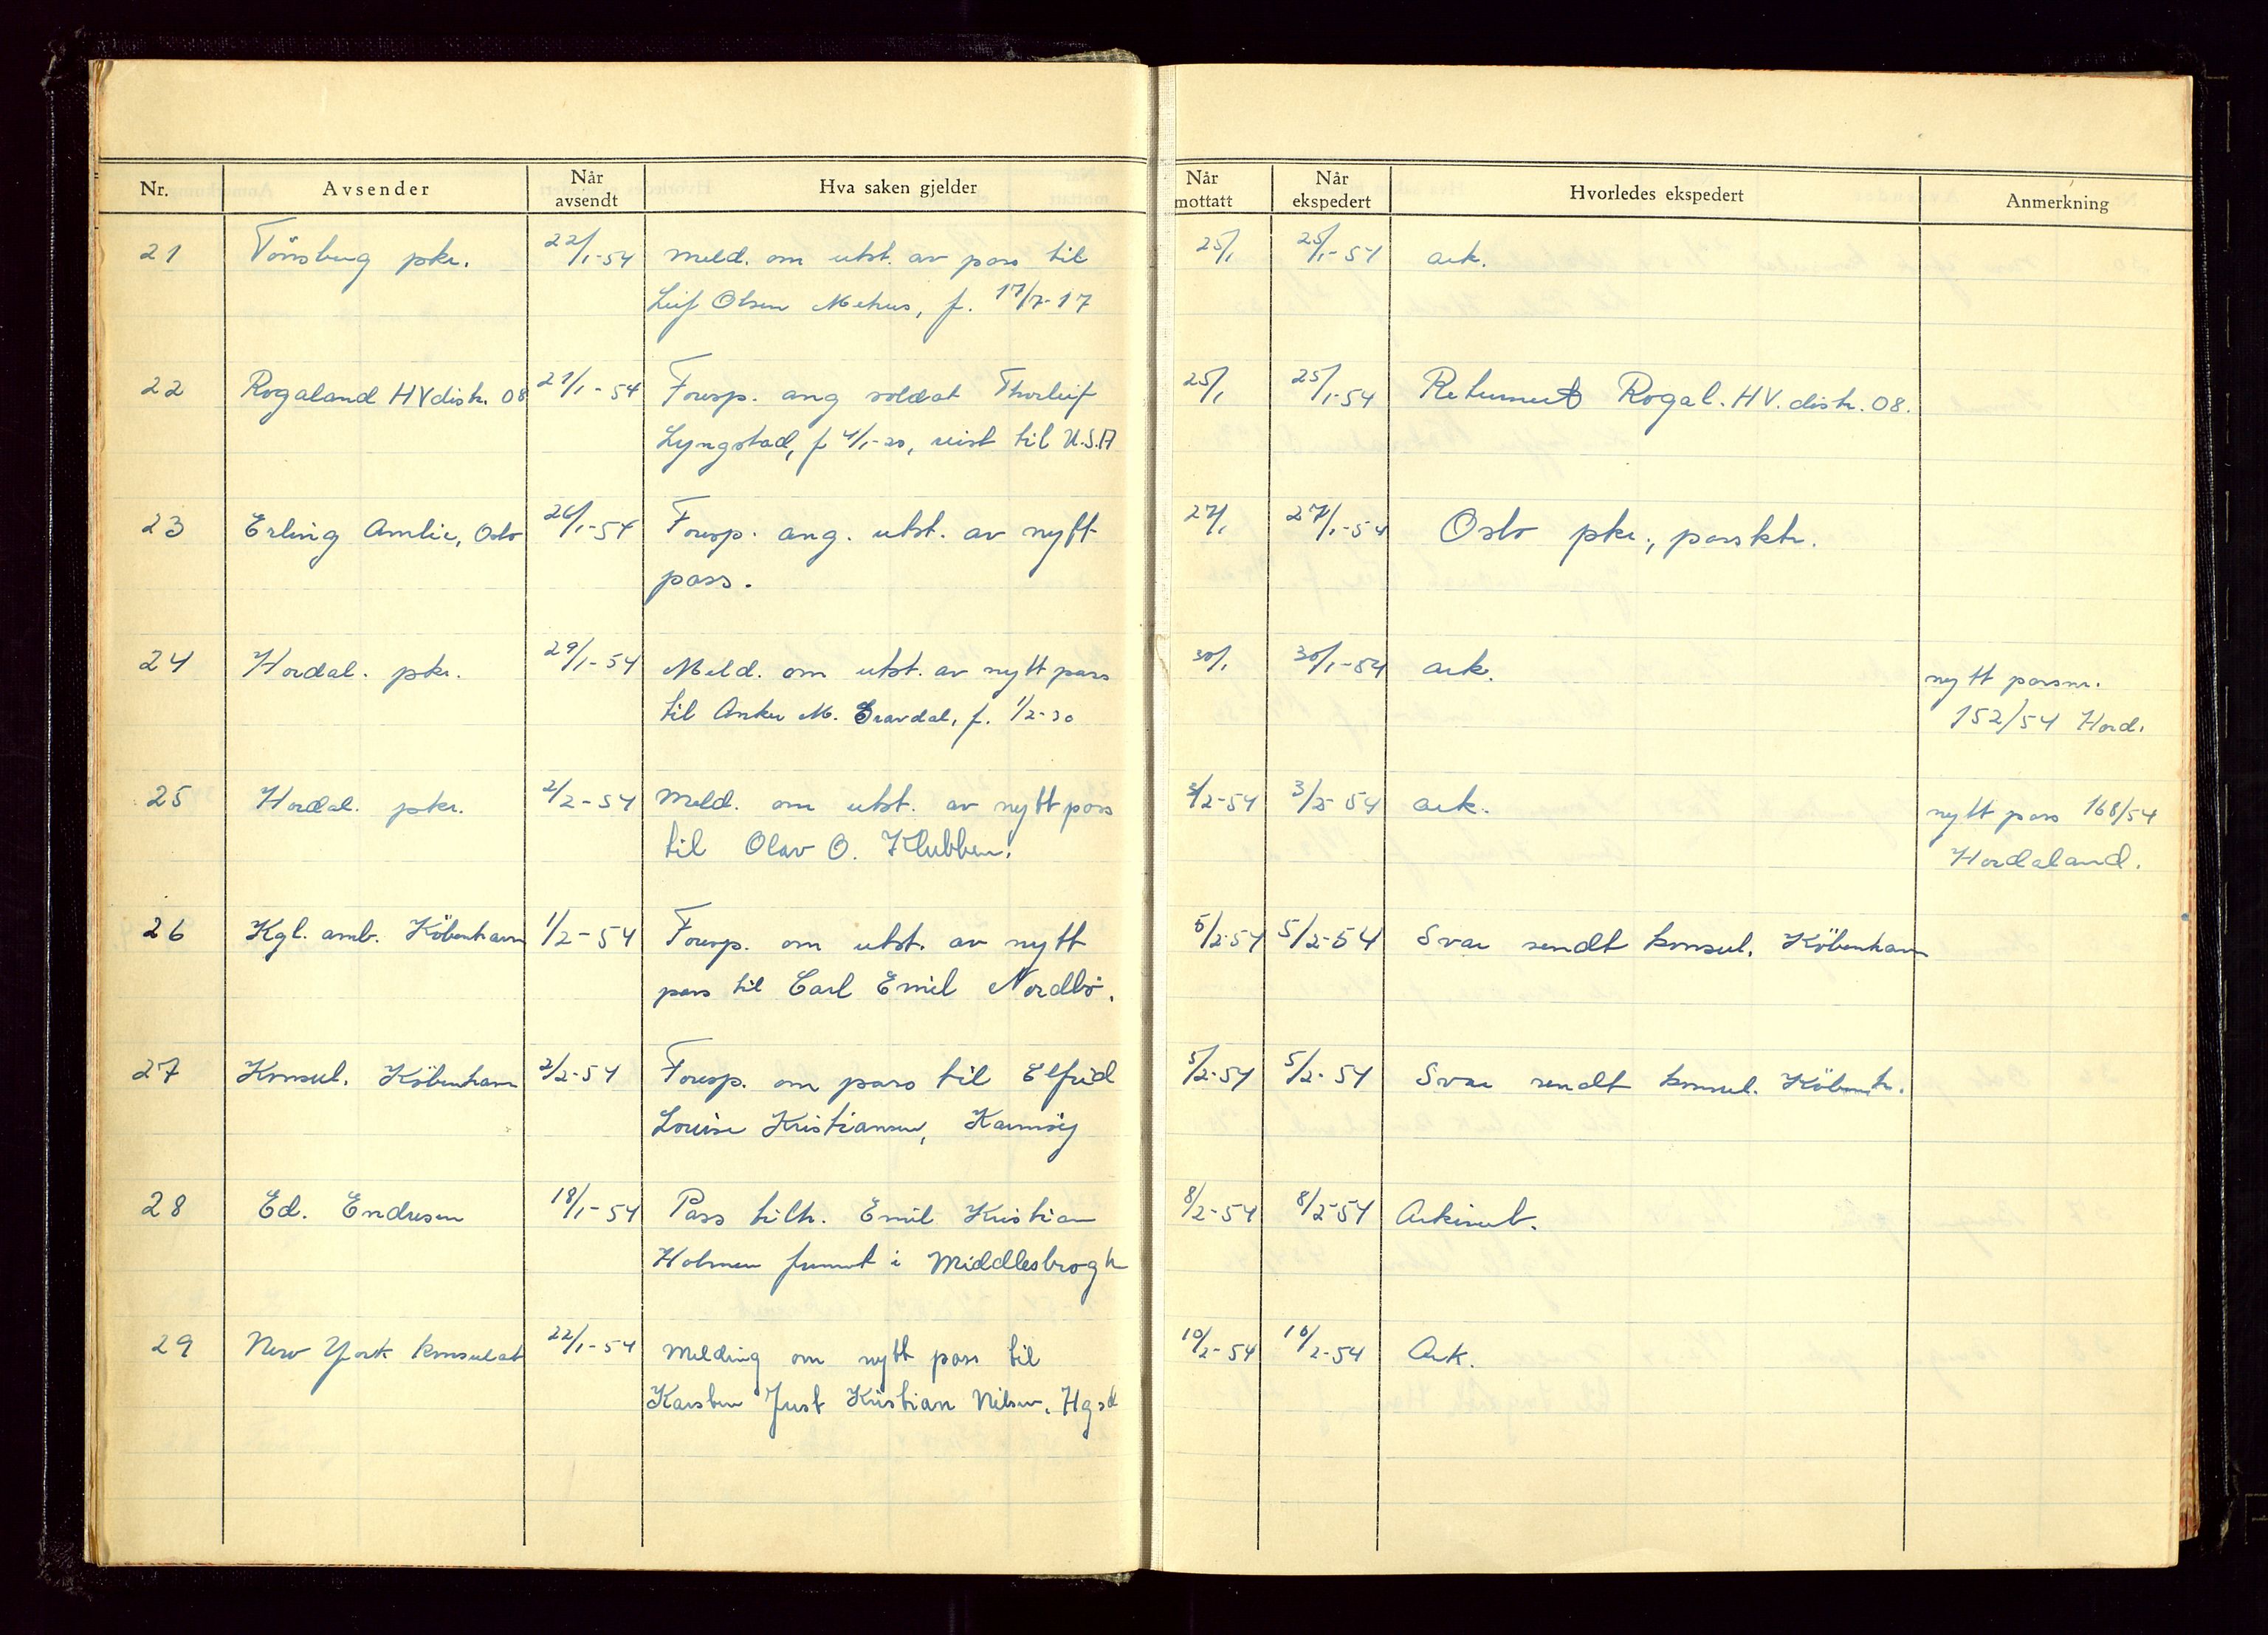 Nr. Avsender Når avsendt Hva saken gjelder Når mottatt Når ekspedert Hvorledes ekspedert Anmerkning
21 Tönsberg pkr. 22/1-54 Meld. om utst. av pass til 25/1 25/1-54 ark.
Leif Olsen Mehus, f. 17/7-17
22 Rogaland HVdistr. 08 21/1-54 Foresp. ang soldat Thorleif 25/1 25/1-54 Returnert Rogal. HV. distr. 08.
Lyngstad, f 4/1-20, reist til U.S.A
23 Erling Amlie, Oslo 26/1-54 Foresp. ang. utst. av nytt 27/1 27/1-54 Oslo pkr., passktr.
pass.
24 Hordal. pkr. 29/1-54 Meld. om utst. av nytt pass 30/1 30/1-54 ark. nytt passnr.
til Anker M. Gravdal, f. 1/2-30 152/54 Hord.
25 Hordal. pkr. 2/2-54 Meld. om utst. av nytt pass 3/2-54 3/2-54 ark. nytt pass 168/54
til Olav O. Klubben. Hordaland.
26 Kgl. amb. Köbenhavn 1/2-54 Foresp. om utst. av nytt 5/2-54 5/2-54 Svar sendt konsul. Köbenhavn
pass til Carl Emil Nordbö.
27 Konsul. Köbenhavn 2/2-54 Foresp. om pass til Elfrid 5/2-54 5/2-54 Svar sendt konsul. Köbenh.
Louise Kristiansen, Karmöy
28 Ed. Endresen 18/1-54 Pass tilh. Emil Kristian 8/2-54 8/2-54 Arkivert.
Holmen funnet i Middlesbrogh
29 New York konsulat 22/1-54 Melding om nytt pass til 10/2-54 10/2-54 Ark.
Karsten Just Kristian Nilsen. Hgsd